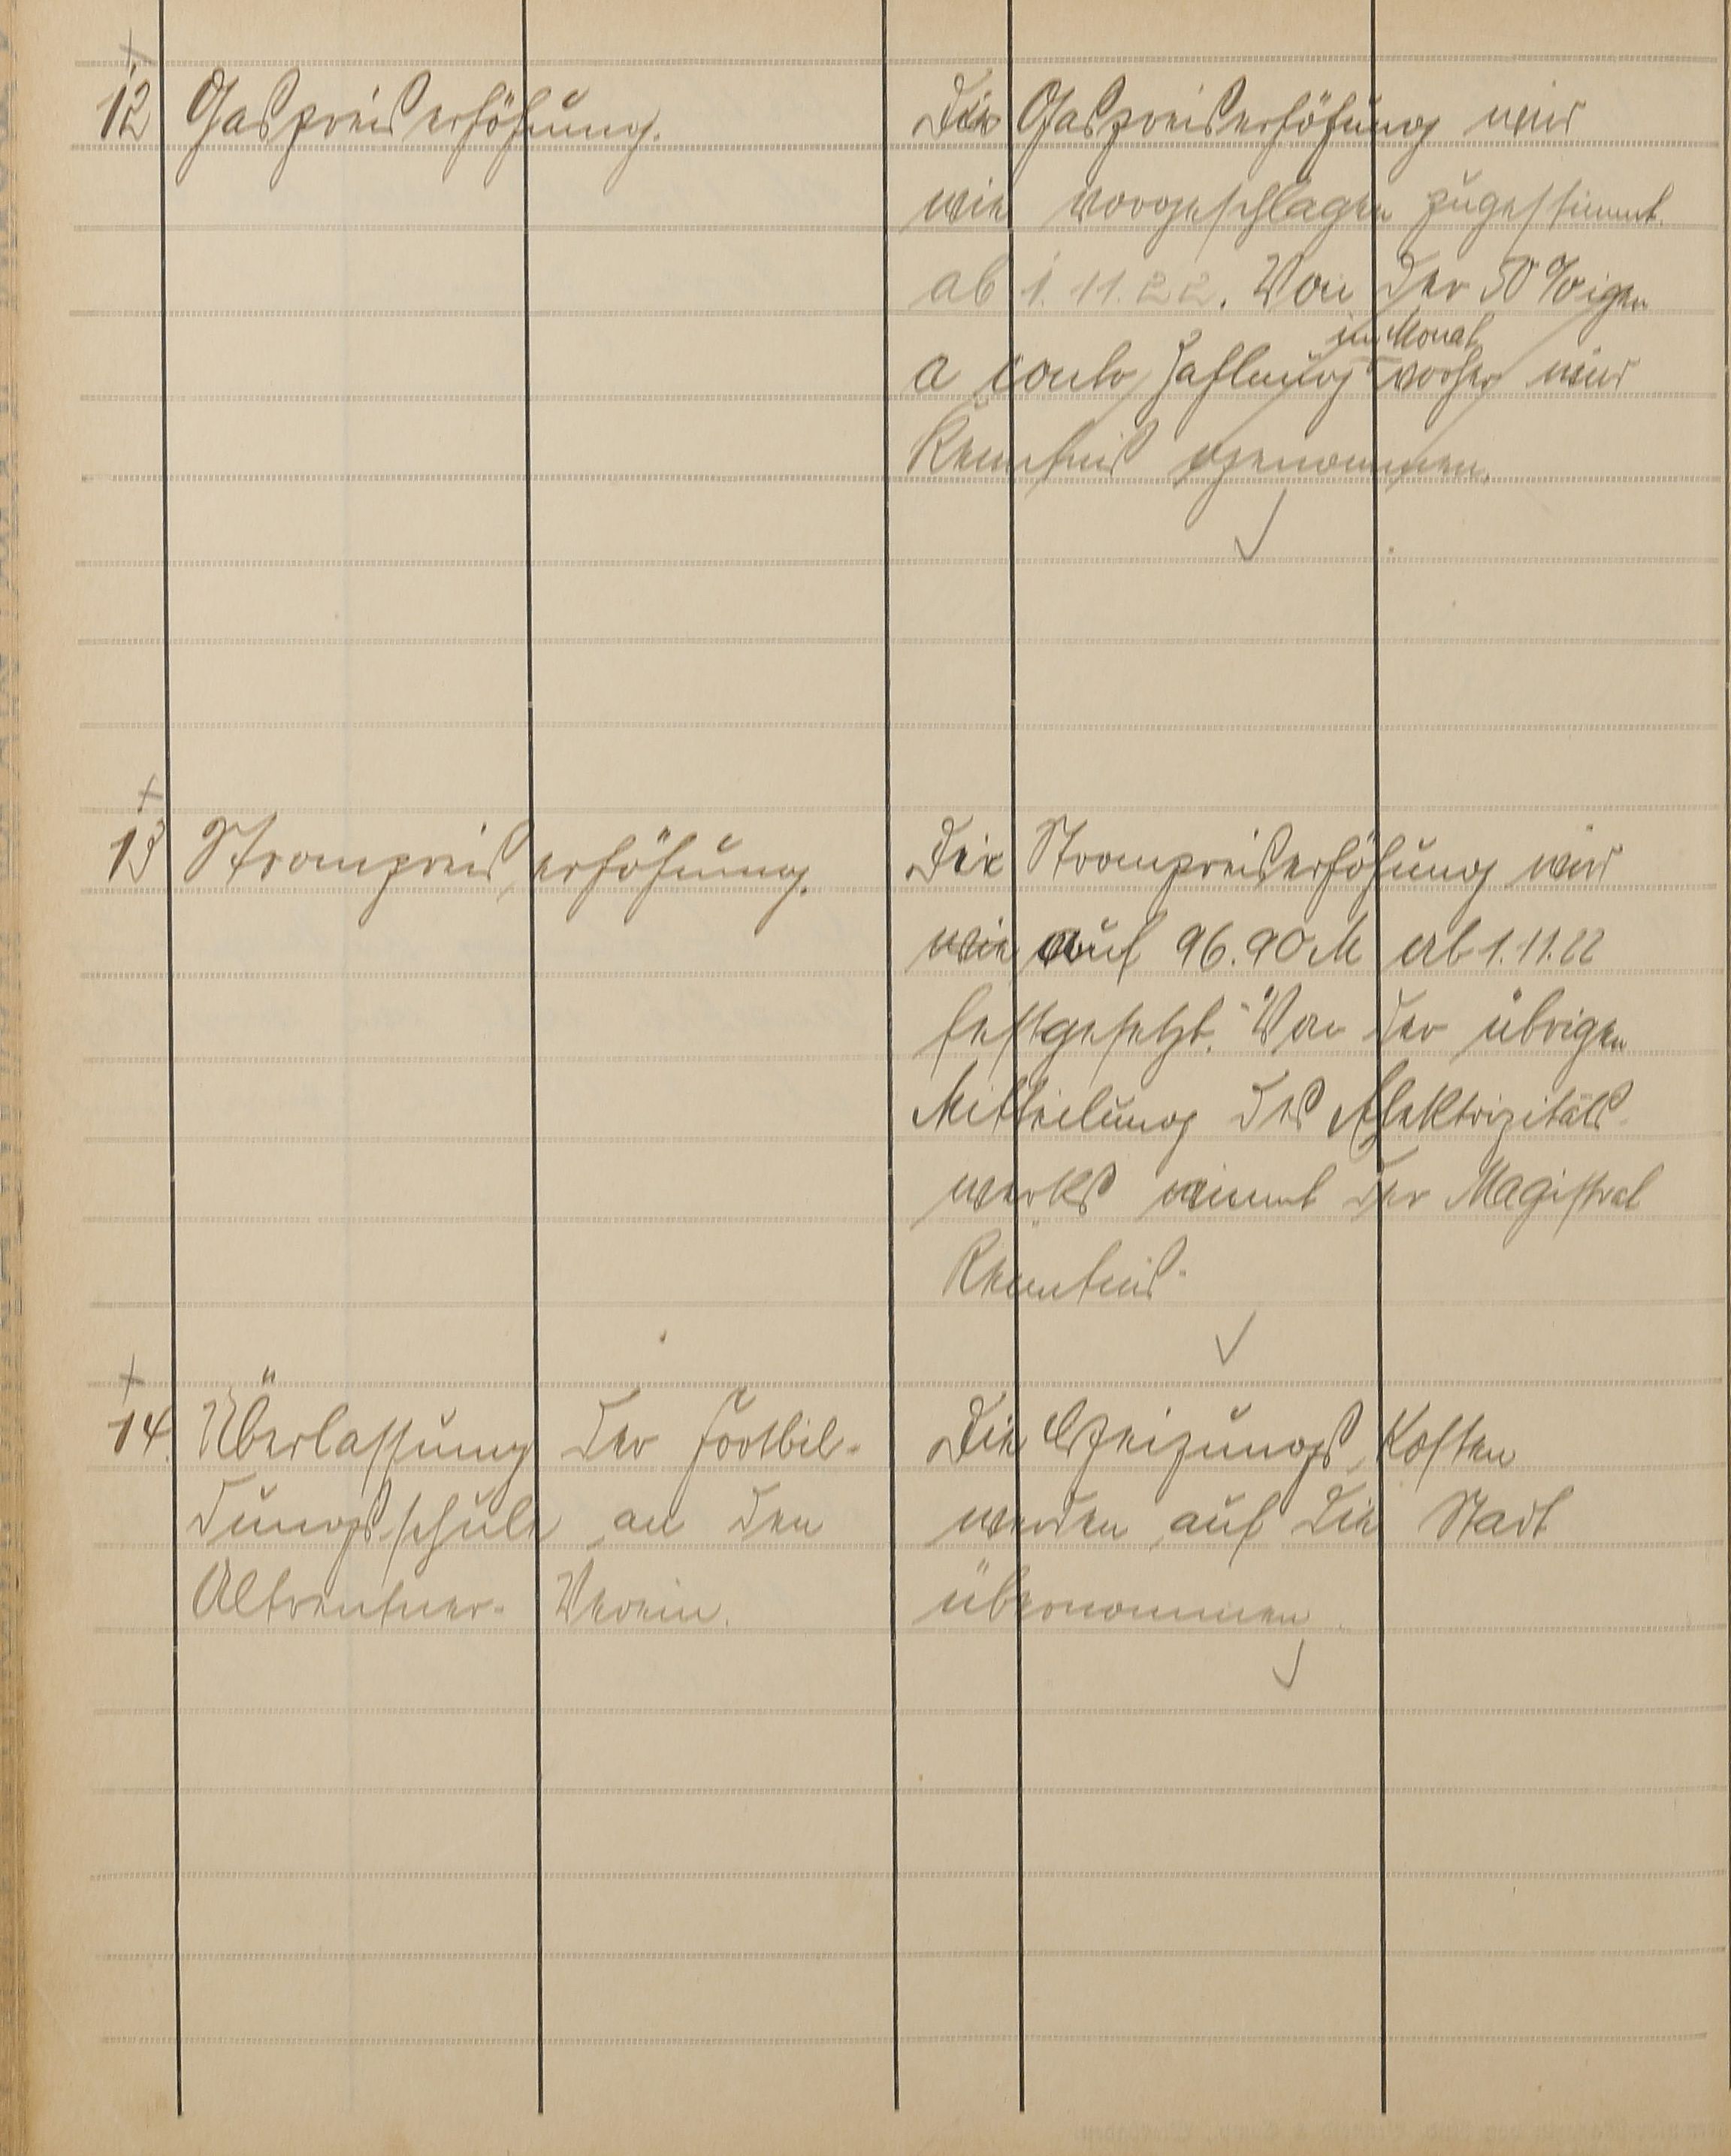 12 Gaspreiserhöhung.
Die Gaspreiserhöhung wird
wie vorgeschlagen zugestimmt.
ab 1.11.22. Von der 50%igen
im Monat
a conto Zahlung vorher wird
Kenntnis genommen.
13 Strompreiserhöhung.
Die Strompreiserhöhung wird
wie auf 96.90 M ab 1.11.22
festgesetzt. Von der übrigen
Mitteilung des Elektrizitäts-
werks nimmt der Magistrat
Kenntnis.
14. Überlassung der Fortbil-
dungsschule an den
Altrentner-Verein.
Die Heizungs Kosten
werden auf die Stadt
übernommen